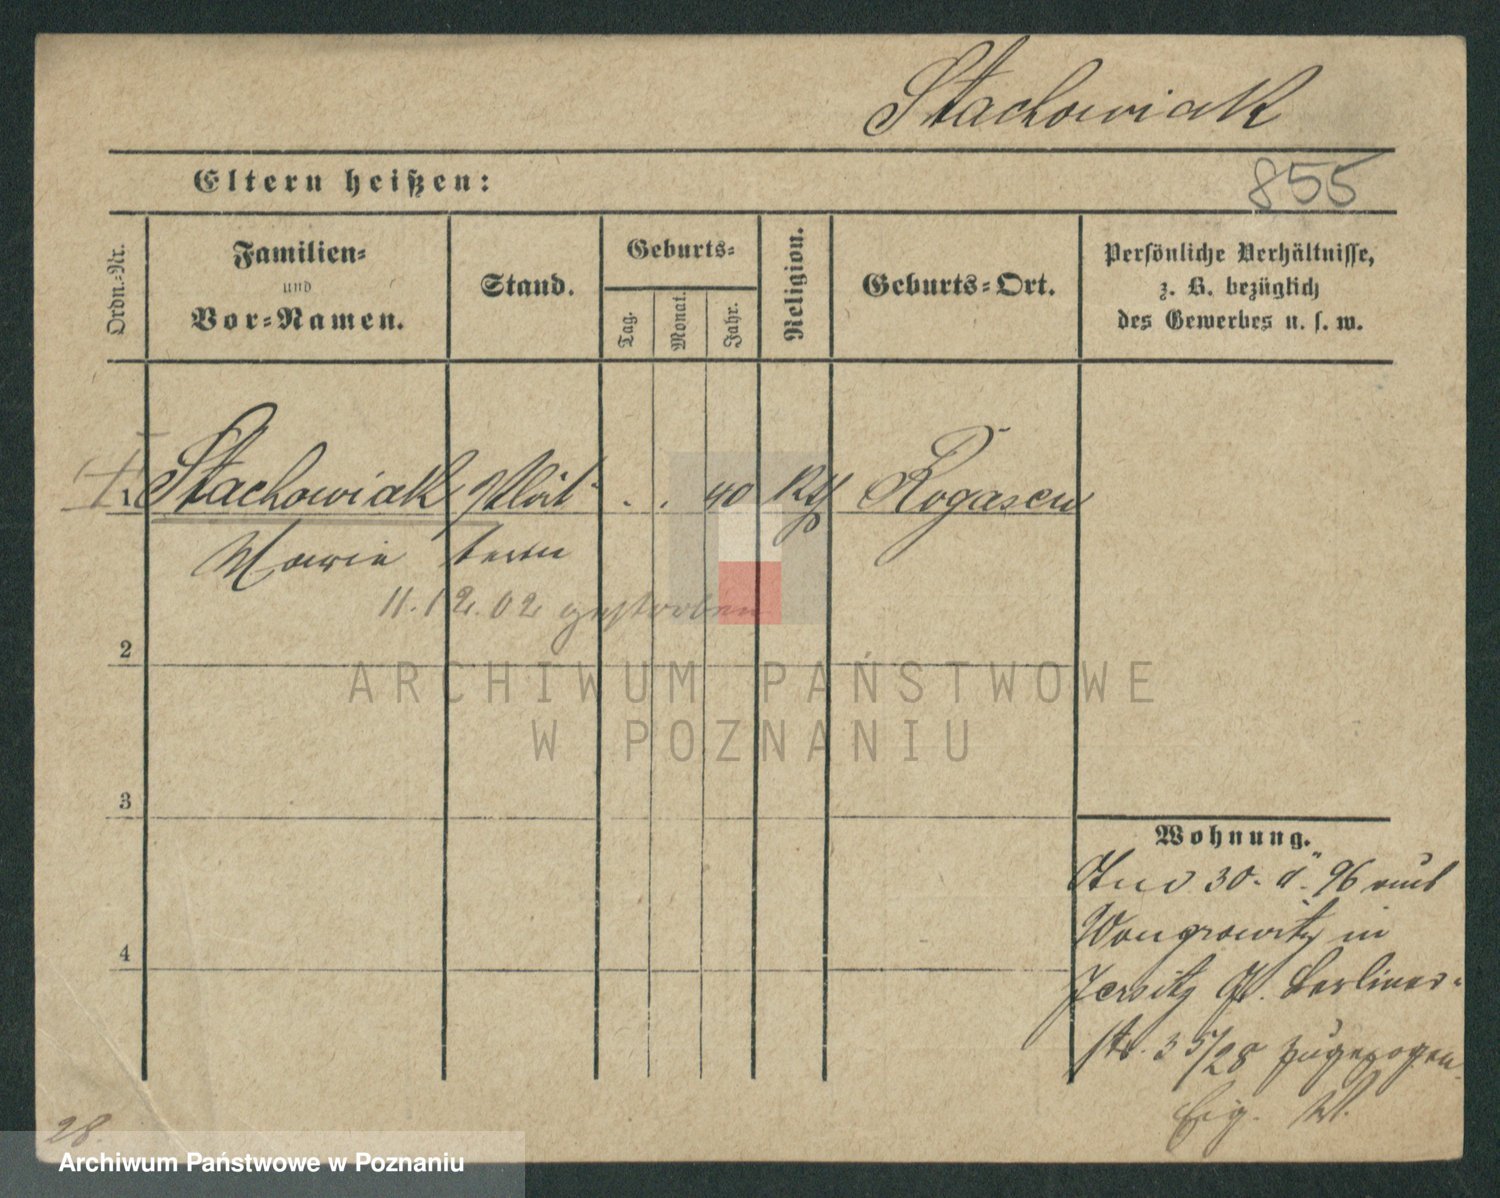 Stachowiak
Eltern heißen:
855
Ordn.-Nr.
Familien-
und
Vor-Namen.
Stand.
Geburts-
Tag.
Monat.
Jahr.
Religion.
Geburts-Ort.
Persönliche Verhältnisse,
z. B. bezüglich
des Gewerbes u. s. w.
1 Stachowiak . . 40 Kth Rogasen
Marie
11.12.02 gestorben
2
ARCHIWUM PAŃSTWOWE
W POZNANIU
3
Wohnung.
30. 96 aus
Wongrowitz in
Jersitz Gr. Berliner-
str. 35/28 zugezogen
4
Eig. W.
28.
Archiwum Państwowe w Poznaniu